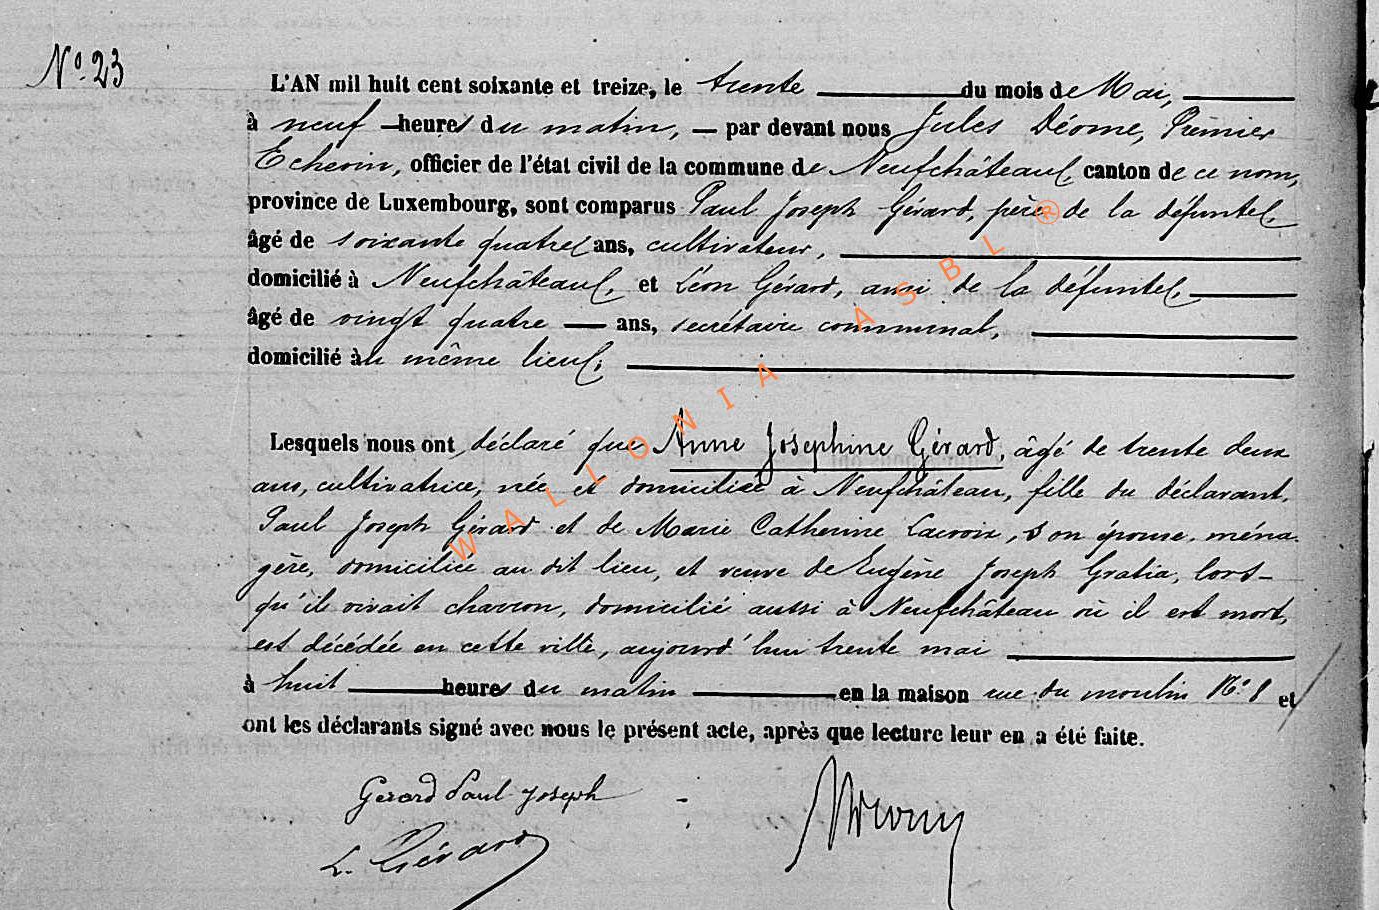 Nº 23
L'AN mil huit cent soixante et treize, le trente du mois de Mai,
à neuf heures du matin, par devant nous Jules Déome, Premier
Echevin, officier de l'état civil de la commune de Neufchâteau, canton de ce nom,
province de Luxembourg, sont comparus Paul Joseph Gérard, père de la défunte,
âgé de soixante quatre ans, cultivateur,
domicilié à Neufchâteau, et Léon Gérard, ami de la défunte,
âgé de vingt quatre ans, secrétaire communal,
domicilié au même lieu;
Lesquels nous ont déclaré que Anne Josephine Gérard, âgé de trente deux
ans, cultivatrice, née et domiciliée à Neufchâteau, fille du déclarant,
Paul Joseph Gérard et de Marie Catherine Lacroix, son épouse, ména-
gère, domiciliée au dit lieu, et veuve de Eugène Joseph Gratia, lors-
qu'il vivait charron, domicilié aussi à Neufchâteau où il est mort,
est décédée en cette ville, aujourd'hui trente mai
à huit heures du matin en la maison rue du moulin Nº 8 et
ont les déclarants signé avec nous le présent acte, après que lecture leur en a été faite.
Gérard Paul Joseph
L. Gérard
WALLONIA ASBL ®